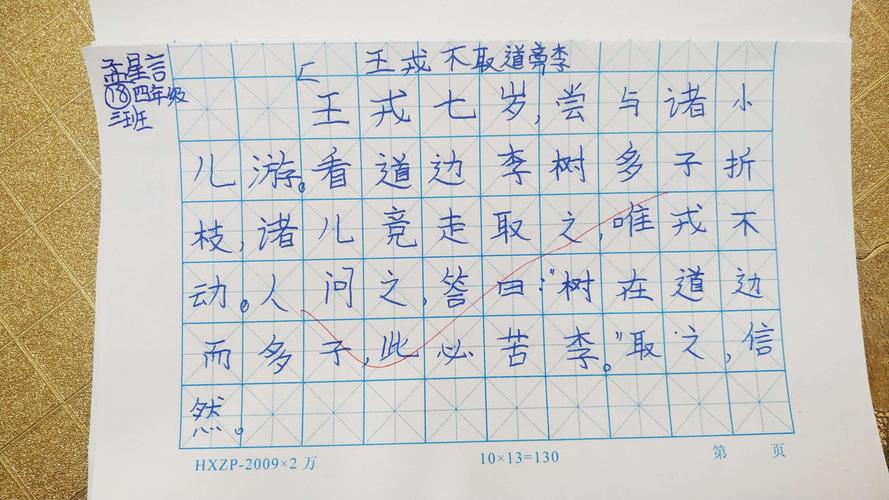 王戎不取道旁李
孟星言
⑱四年级
三班
王戎七岁,尝与诸小
儿游。看道边李树多子折
枝,诸儿竞走取之,唯戎不
动。人问之,答曰:"树在道边
而多子,此必苦李。"取之,信
然。
HXZP-2009×2万 10×13=130 第 页